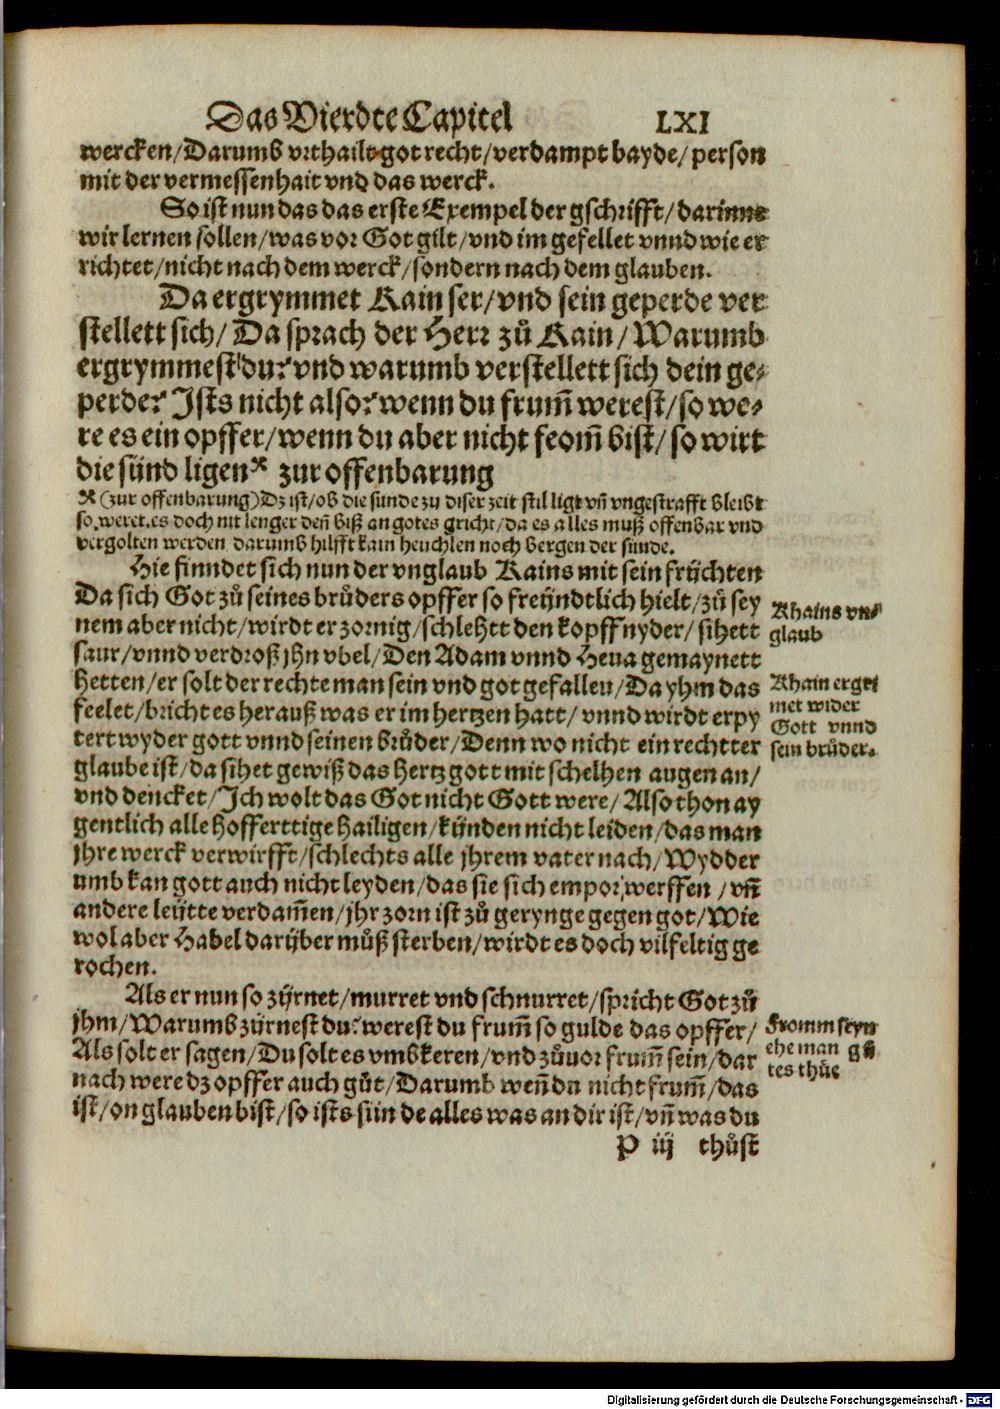 Das Vierdte Capitel LXI
wercken/Darumb vrthailt got recht/verdampt bayde/person
mit der vermessenhait vnd das werck.
So ist nun das das erste Exempel der gschrifft/darinne
wir lernen sollen/was vor Got gilt/vnd im gefellet vnnd wie er
richtet/nicht nach dem werck/sondern nach dem glauben.
Da ergrymmet Kain ser/vnd sein geperde ver
stellett sich/Da sprach der Herr zů Kain/Warumb
ergrymmest du? vnd warumb verstellett sich dein ge-
perde? Ists nicht also? wenn du frum̃ werest/so we-
re es ein opffer/wenn du aber nicht feom̃ bist/so wirt
die sünd ligen* zur offenbarung
* (zur offenbarung) Dz ist/ob die sunde zu diser zeit stil ligt vñ vngestrafft bleibt
so weret es doch nit lenger deñ biß an gotes gricht/da es alles muß offenbar vnd
vergolten werden darumb hilfft kain heuchlen noch bergen der sunde.
Hie finndet sich nun der vnglaub Kains mit sein frÿchten
Da sich Got zů seines brůders opffer so freÿndtlich hielt/zů sey
nem aber nicht/wirdt er zornig/schlehtt den kopff nyder/sihett
saur/vnnd verdroß jhn vbel/Den Adam vnnd Heua gemaynett
hetten/er solt der rechte man sein vnd got gefallen/Da yhm das
feelet/bricht es herauß was er im hertzen hatt/vnnd wirdt erpy
tert wyder gott vnnd seinen brůder/Denn wo nicht ein rechtter
glaube ist/da sihet gewiß das hertz gott mit schelhen augen an/
vnd dencket/Ich wolt das Got nicht Gott were/Also thon ay
gentlich alle hofferttige hailigen/kÿnden nicht leiden/das man
jhre werck verwirfft/schlechts alle jhrem vater nach/Wydder
umb kan gott auch nicht leyden/das sie sich empor werffen/vñ
andere leÿtte verdam̃en/jhr zorn ist zů gerynge gegen got/Wie
wol aber Habel darÿber můß sterben/wirdt es doch vilfeltig ge
rochen.
Als er nun so zÿrnet/murret vnd schnurret/spricht Got zů
jhm/Warumb zÿrnest du? werest du frum̃ so gulde das opffer/
Als solt er sagen/Du solt es vmbkeren/vnd zůuor frum̃ sein/dar
nach were dz opffer auch gůt/Darumb weñ du nicht frum̃/das
ist/on glauben bist/so ists sünde alles was an dir ist/vñ was du
P iij thůst
Khains vn-
glaub
Khain ergri
met wider
Gott vnnd
sein brůder.
Fromm seyn
ehe man gů
tes thůe
Digitalisierung gefördert durch die Deutsche Forschungsgemeinschaft - DFG